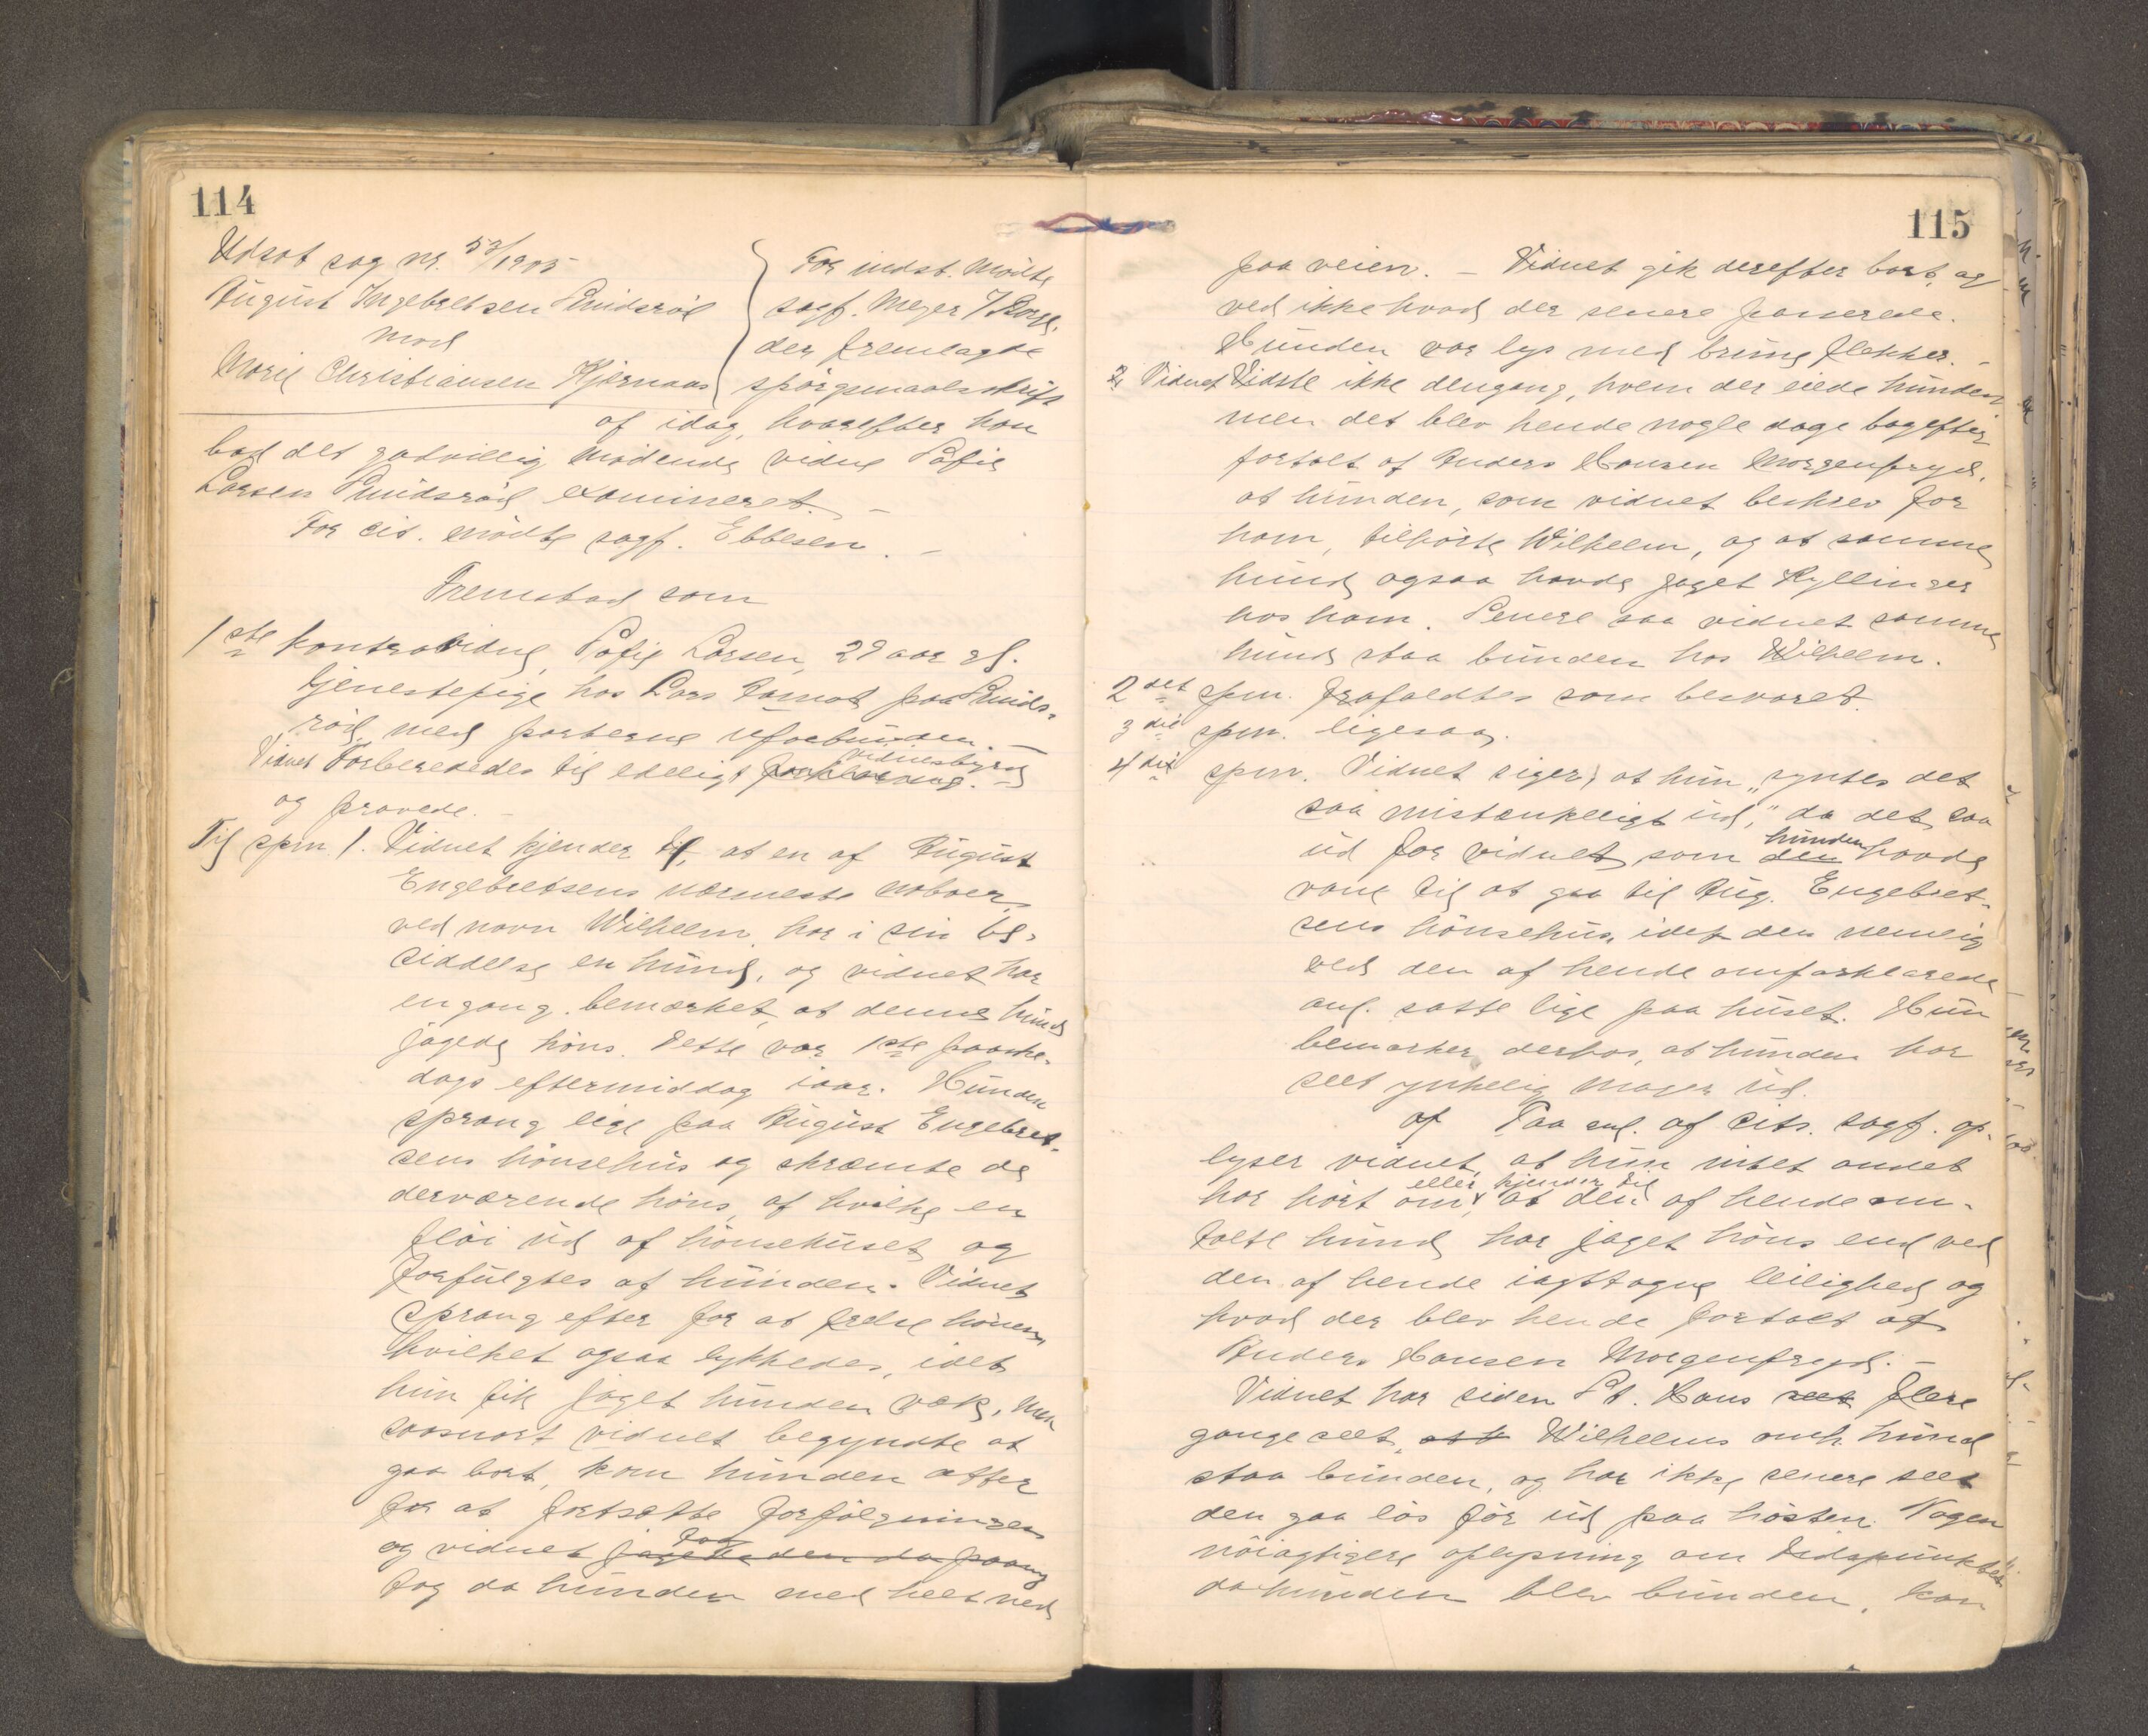 114
Udsat sag nr. 53/1905
August Ingebretsen Smidsröd
mod
Marie Christiansen Kjærnaas
For indst. mödte
sagf. Meyer
der fremlagde
spörgsmaalsskrift
af idag, hvorefter han
bad det godvillig mödende vidne Sofie
Larsen Smidsröd examineret. –
For cit. mödte sagf. Ebbesen. –
Fremstod som
1ste kontravidne, Sofie Larsen, 29 aar gl.
tjenestepige hos Lars paa Smids-
röd, med parterne uforbunden. –
Vidnet Forberededes til edeligt forklaring. vidnesbyrd
og prøvede. –
Til spm. 1. Vidnet kjender til, at en af August
Engebretsens nærmeste naboer,
ved navn Wilhelm, har i sin be-
siddelse en hund, og vidnet har
engang bemærket, at denne hund
jagede höns. Dette var 1ste paaske-
dags eftermiddag iaar. Hunden
sprang lige paa August Engebret-
sens hönsehus og skræmte de
derværende höns, af hvilke en
flöi ud af hönsehuset og
forfulgtes af hunden. Vidnet
sprang efter for at frelse hönen,
hvilket ogsaa lykkedes, idet
hun fik jaget hunden væk, men
saasnart vidnet begyndte at
gaa bort, kom hunden atter
for at fortsætte forfölgningen
og vidnet jagede den da paany tog
tog da hunden med helt ned
115
paa veien. – Vidnet gik derefter bort, og
ved ikke hvad der senere passerede.
Hunden var lys med brune flekker. –
2 Vidnet Vidste ikke dengang, hvem der eiede hunden,
men det blev hende nogle dage bagefter
fortalt af Anders Hansen Morgenfryd,
at hunden, som vidnet beskrev for
ham, tilhörte Wilhelm, og at samme
hund ogsaa havde jaget Kyllinger
hos ham. Senere saa vidnet samme
hund staa bunden hos Wilhelm.
2det spm. frafaldtes som besvaret.
3die spm. ligesaa.
4die spm. Vidnet siger, at hun „syntes det
saa mistænkeligt ud,“ da det saa
ud for vidnet som den hunden havde
vane til at gaa til Aug. Engebret-
sens hönsehus, idet den nemlig
ved den af hende omforklarede
anl. satte lige paa huset. Hun
bemærker derhos, at hunden har
seet ynkelig mager ud.
af Paa anl. af cits. sagf. op-
lyser vidnet, at hun intet andet
har hört om, eller kjender til at den af hende om-
talte hund har jaget höns end ved
den af hende iagttagne leilighed og
hvad der blev hende fortalt af
Anders Hansen Morgenfryd. –
Vidnet har siden St. Hans seet flere
gange seet, at Wilhelms omh. hund
staa bunden, og har ikke senere seet
den gaa lös för ud paa hösten. Nogen
nöiagtigere oplysning om tidspunktet
da hunden blev bunden, kan